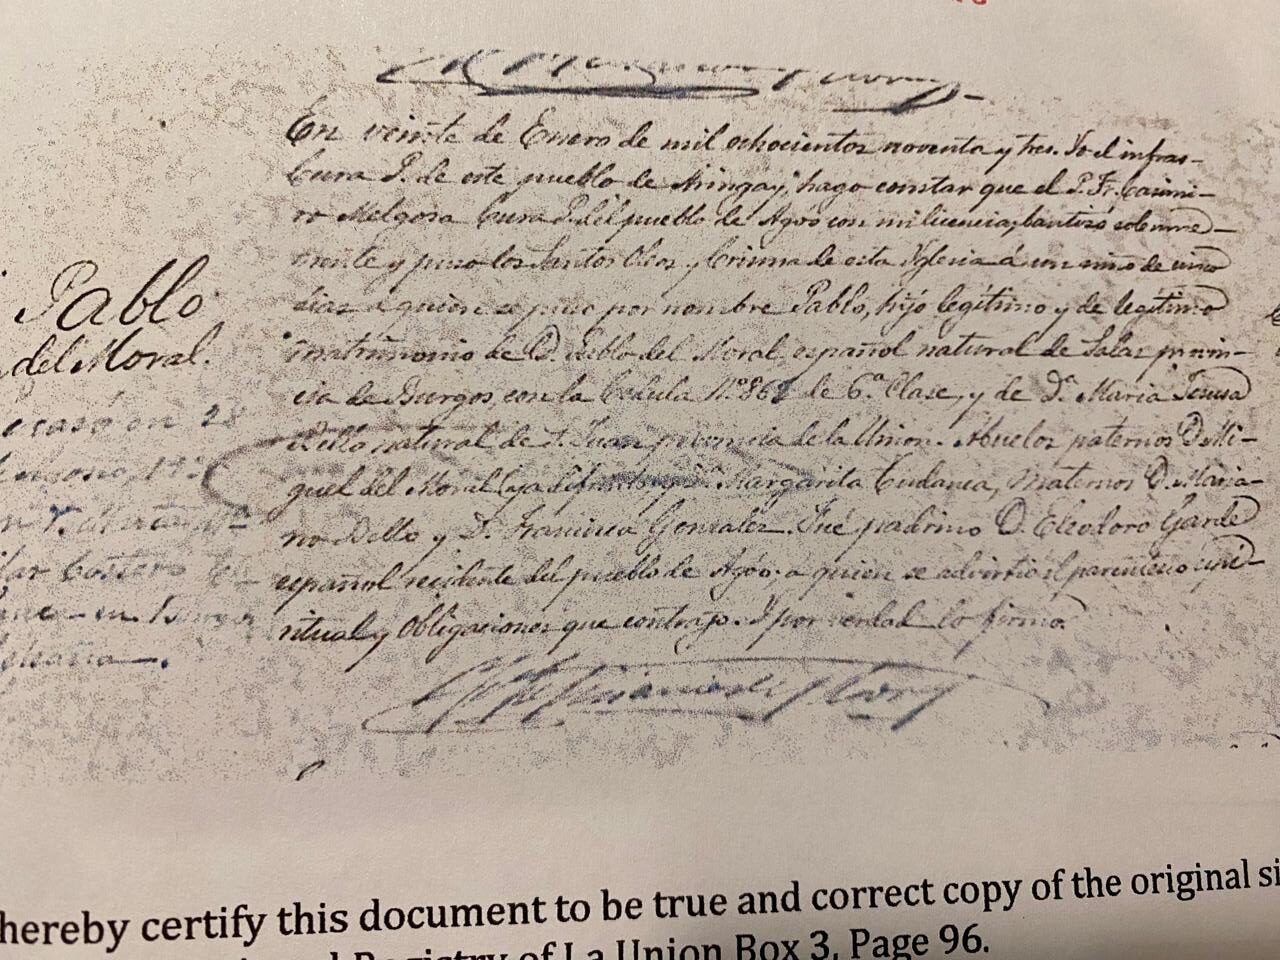 En veinte de Enero de mil ochocientos noventa y tres. Yo el infras-
Cura P. de este pueblo de Aringay, hago constar que el P. Fr. Casimi-
ro Melgosa Cura P. del pueblo de Agóo con mi licencia, bautizó solemne-
mente y puso los Santos Oleos y Crisma de esta Yglesia á un niño de cinco
dias á quien se puso por nombre Pablo, hijo legítimo y de legítimo
matrimonio de D. Pablo del Moral, español natural de Salas provin-
cia de Burgos, con la Cedula Nº 868 de 6ª Clase, y de Dª Maria Teresa
natural de S. Juan provincia de la Union. Abuelos paternos D. Mi-
guel del Moral (ya difunto) y Dª Margarita Cudanea, Maternos D. Maria-
no y D. Francisca Gonzalez. Fué padrino D. Eleodoro Garde
español residente del pueblo de Agóo, a quien se advirtió el parentesco espi-
ritual y obligaciones que contrajo. Y por verdad lo firmo
Pablo
del Moral.
caso en 28
en
hereby certify this document to be true and correct copy of the original si
Registry of La Union Box 3, Page 96.